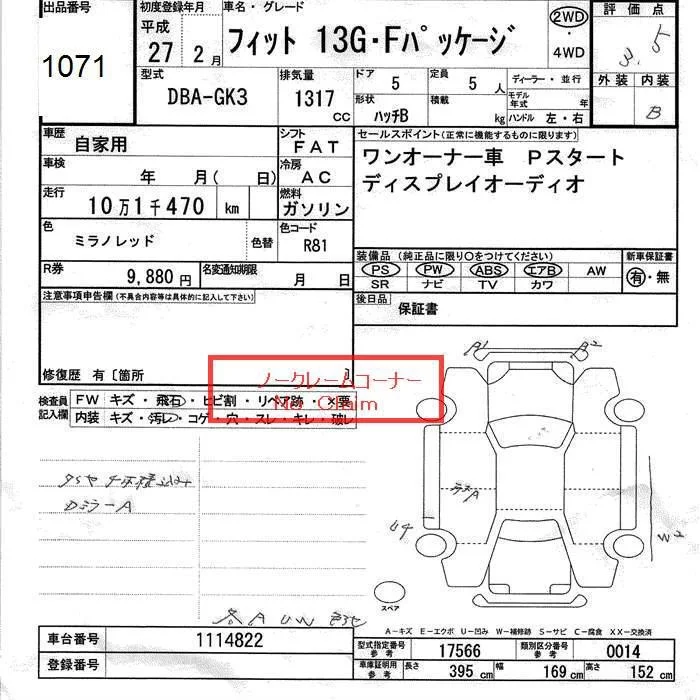 出品番号 初度登録年月 車名・グレード 評価点
1071 平成 27年 2月 フィット 13G・Fパッケージ 2WD・4WD 3.5
型式 排気量 ドア 定員 ディーラー・並行 外装 内装
DBA-GK3 1317 CC 5 5人 モデル年式 年 B
形状 積載
ハッチB kg ハンドル 左・右
車歴 自家用 シフト FAT セールスポイント(正常に機能するものに限ります)
車検 年 月( 日) 冷房 AC ワンオーナー車 Pスタート
走行 10万1千470 km 燃料 ガソリン ディスプレイオーディオ
色 ミラノレッド 色替 色コード R81
装備品(純正品に限り○をつけてください) 新車保証書
R券 9,880円 名変通知期限 月 日 PS PW ABS エアB AW 有・無
SR ナビ TV カワ
注意事項申告欄(不具合内容等は具体的に記入して下さい) 後日品 保証書
修復歴 有〔箇所 〕
ノークレームコーナー
No Claim
検査員記入欄 FW キズ・飛石・ヒビ割・リペア跡・×要
内装 キズ・汚レ・コゲ・穴・スレ・キレ・破レ
A2
DミラーA
W2
スペア
A-キズ E-エクボ U-凹み W-補修跡 S-サビ C-腐食 XX-交換済
車台番号 1114822 型式指定番号 参考 17566 類別区分番号 参考 0014
登録番号 車庫証明用 参考 長さ 395 cm 幅 169 cm 高さ 152 cm